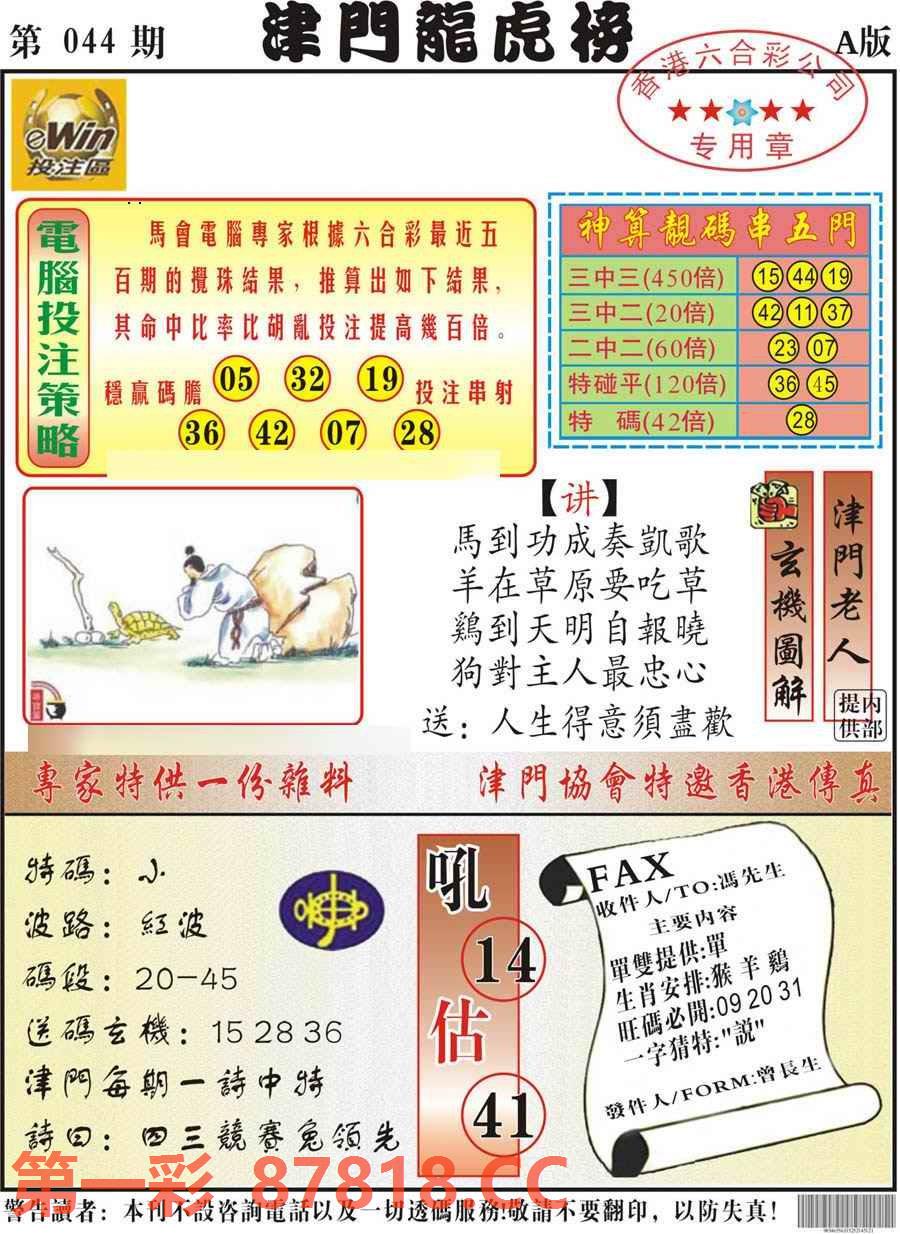 第 044 期
津門龍虎榜
A版
香港六合彩公司
专用章
eWin
投注區
電腦投注策略
馬會電腦專家根據六合彩最近五
百期的攪珠結果，推算出如下結果，
其命中比率比胡亂投注提高幾百倍。
穩贏碼膽 05 32 19 投注串射
36 42 07 28
神算靚碼串五門
三中三(450倍) 15 44 19
三中二(20倍) 42 11 37
二中二(60倍) 23 07
特碰平(120倍) 36 45
特 碼(42倍) 28
【讲】
馬到功成奏凱歌
羊在草原要吃草
鷄到天明自報曉
狗對主人最忠心
送：人生得意須盡歡
玄機圖解
津門老人
内部提供
專家特供一份雜料
津門協會特邀香港傳真
特碼：小
波路：紅波
碼段：20-45
送碼玄機：15 28 36
津門每期一詩中特
詩曰：四三競賽兔領先
吼
14
估
41
FAX
收件人/TO:馮先生
主要内容
單雙提供:單
生肖安排:猴 羊 鷄
旺碼必開:09 20 31
一字猜特:"説"
發件人/FORM:曾長生
第一彩 87818.CC
警告讀者：本刊不設咨詢電話以及一切透碼服務!敬請不要翻印，以防失真！